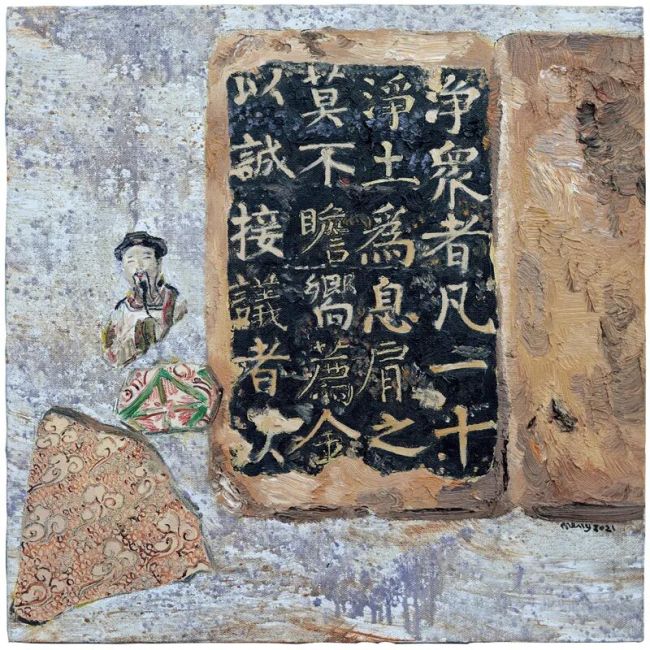 净衆者凡一十
淨土爲息肩之
莫不瞻嚮薦金
以誠接議者次
2021